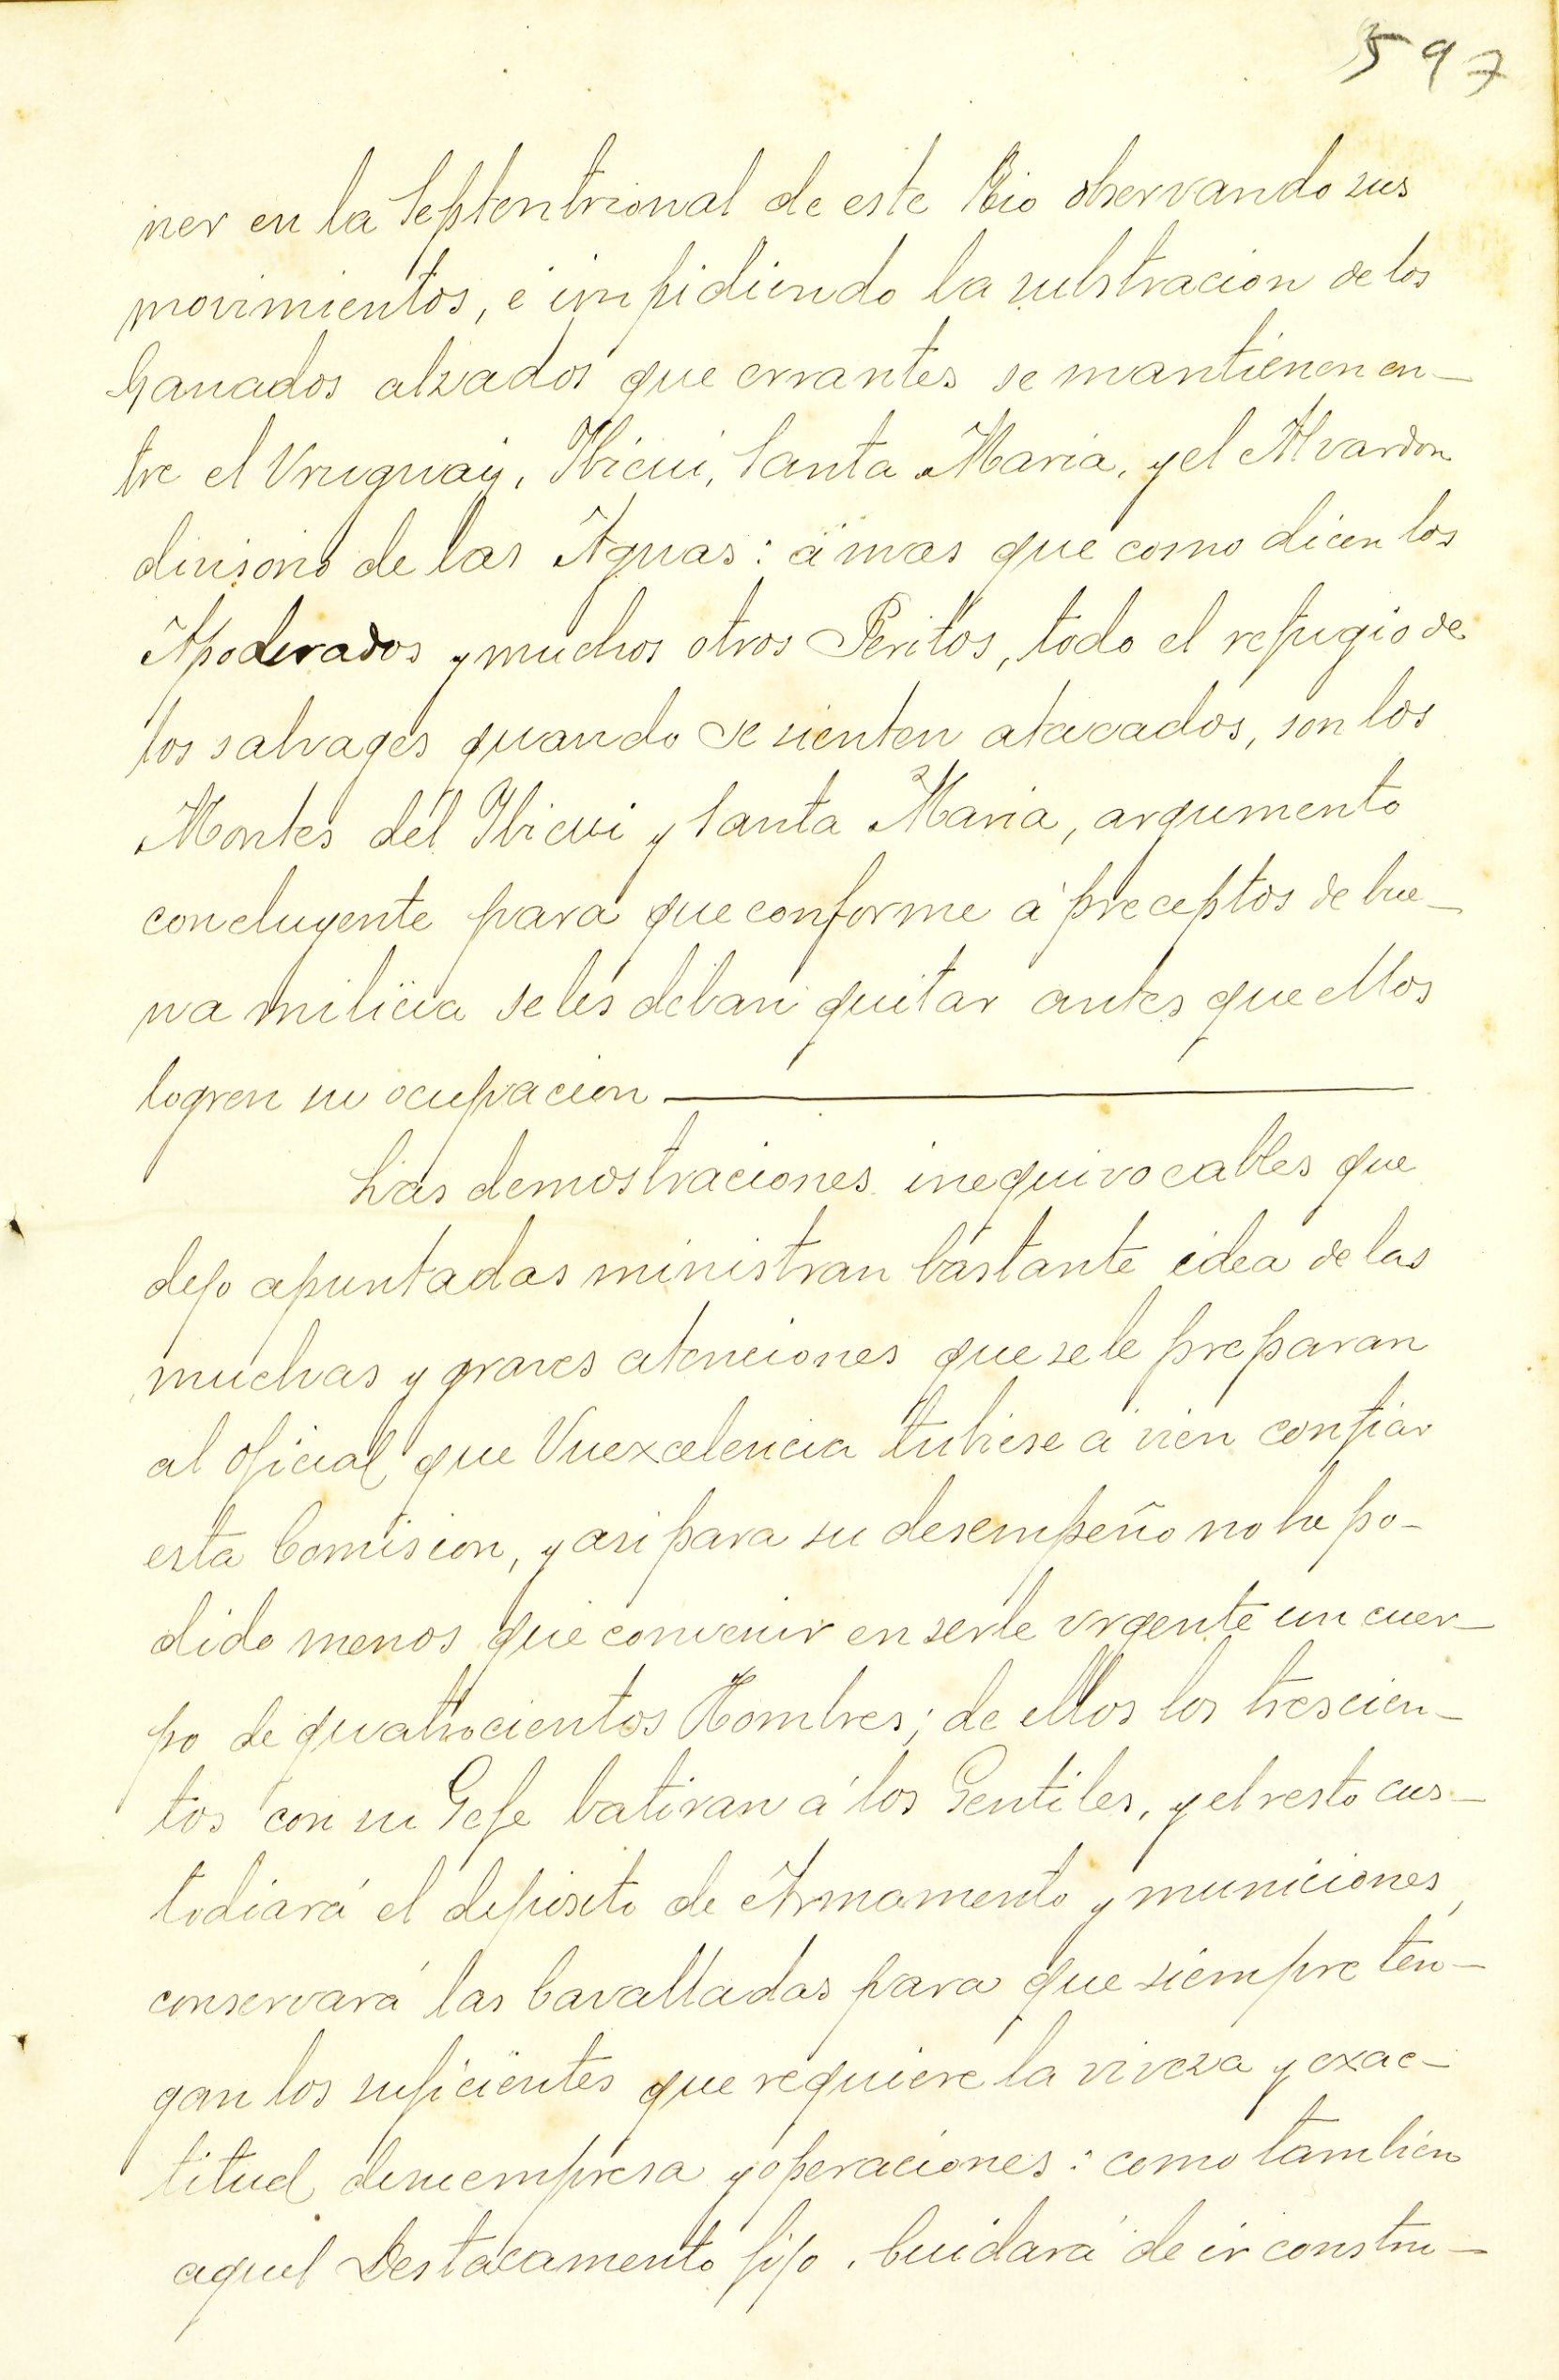 597
ner en la Septentrional de este Rio observando sus
movimientos, é impidiendo la substracion de los
Ganados alzados que errantes se mantienen en-
tre el Vruguay, Ybicui, Santa Maria, y el Alvardon
divisorio de las Aguas: á mas que como dicen los
Apoderados y muchos otros Peritos, todo el refugio de
los salvages quando se sienten atacados, son los
Montes del Ybicui y Santa Maria, argumento
concluyente para que conforme á preceptos de bue-
na milicia se les deban quitar antes que ellos
logren su ocupacion
Las demostraciones inequivocables que
dejo apuntadas ministran bastante idea de las
muchas y graves atenciones que se le preparan
al oficial que Vuexcelencia tubiese á vien confiar
esta Comision, y asi para su desempeño no he po-
dido menos que convenir en serle vrgente un cuer-
po de quatrocientos Hombres; de ellos los trescien-
tos con su Gefe batiran á los Gentiles, y el resto cus-
todiará el deposito de Armamento y municiones,
conservará las Cavalladas para que siempre ten-
gan los suficientes que requiere la viveza y exac-
titud de su empresa y operaciones: como tambien
aquel Destacamento fijo, Cuidará de ir constru-